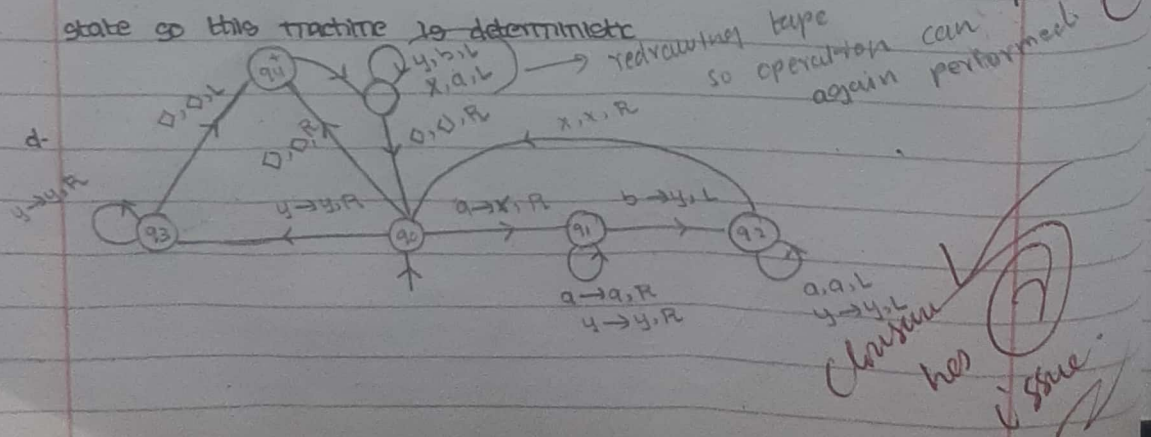 state so this machine is deterministic
q4
y, b, L
x, a, L
→ redrawing tape
so operation can
again performed
□, □, L
□, □, R
□, □, R
x, x, R
d-
y→y, R
y→y, R
a→x, R
b→y, L
q3
q0
q1
q2
a→a, R
y→y, R
a, a, L
y→y, L
has
issue.